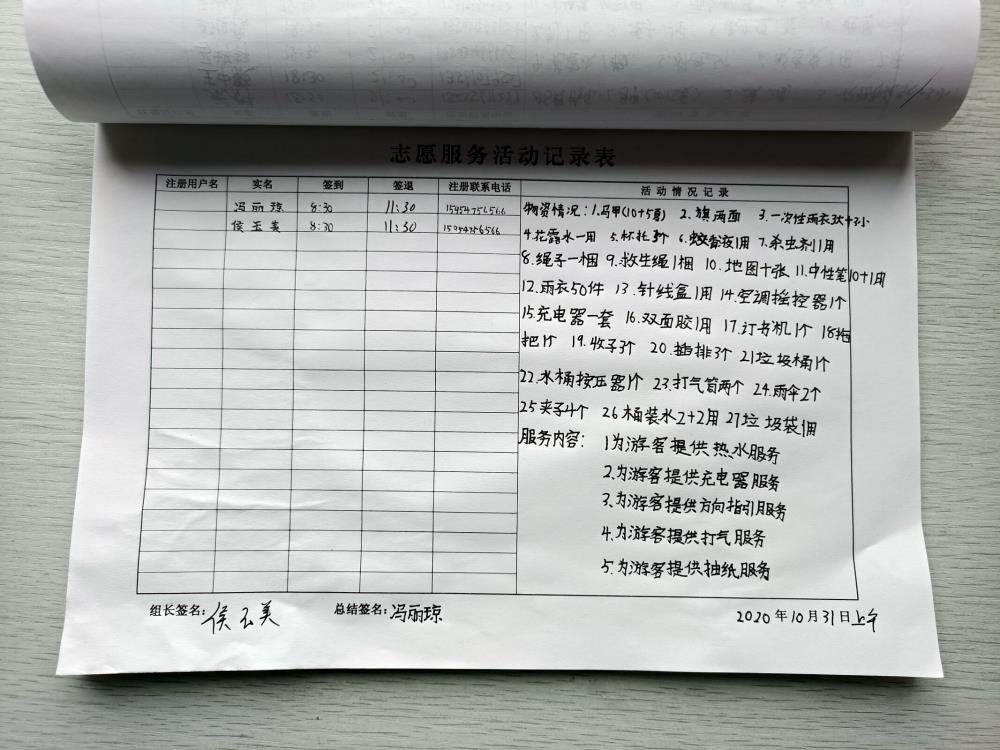 志愿服务活动记录表
注册用户名 实名 签到 签退 注册联系电话 活动情况记录
冯丽琼 8:30 11:30 15454756566
侯玉美 8:30 11:30
物资情况：1.马甲(10+5夏) 2.旗两面 3.一次性雨衣
4.花露水一用 5.杯托3个 6.蚊香液1用 7.杀虫剂1用
8.绳子一梱 9.救生绳1梱 10.地图十张 11.中性笔10+1用
12.雨衣50件 13.针线盒1用 14.空调摇控器1个
15.充电器一套 16.双面胶1用 17.订书机1个 18拖
把1个 19.收子3个 20.插排3个 21垃圾桶1个
22.水桶按压器1个 23.打气筒两个 24.雨伞2个
25夹子4个 26桶装水2+2用 27垃圾袋1用
服务内容： 1为游客提供热水服务
2.为游客提供充电器服务
3.为游客提供方向指引服务
4.为游客提供打气服务
5.为游客提供抽纸服务
组长签名：侯玉美 总结签名：冯丽琼 2020年10月31日上午